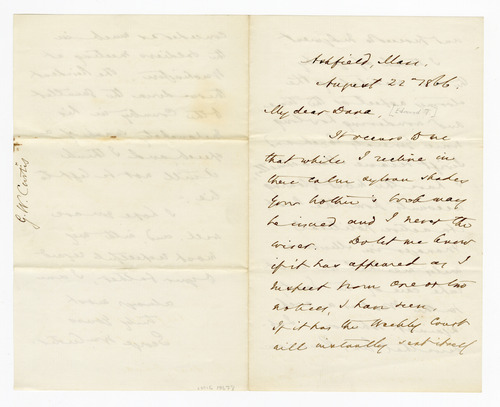 Ashfield, Mass.
August 22 1866.
My dear Dana,
It occurs to me
that while I recline in
these calm sylvan shades
your brother's book may
be issued and I never the
wiser. Do let me know
if it has appeared as I
suspect from one or two
notices, I have seen.
If it has the Weekly Court
will instantly seat itself
G. W. Curtis